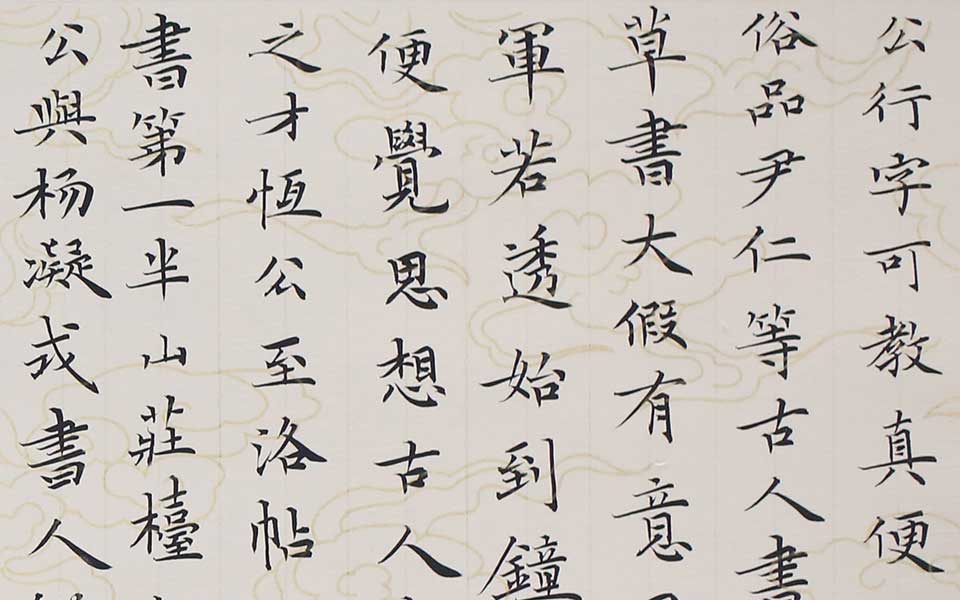 公行字可教真便
俗品尹仁等古人書
草書大假有意
軍若透始到鐘
便覺思想古人
之才恆公至洛帖
書第一半山莊檯
公與杨凝戎書人